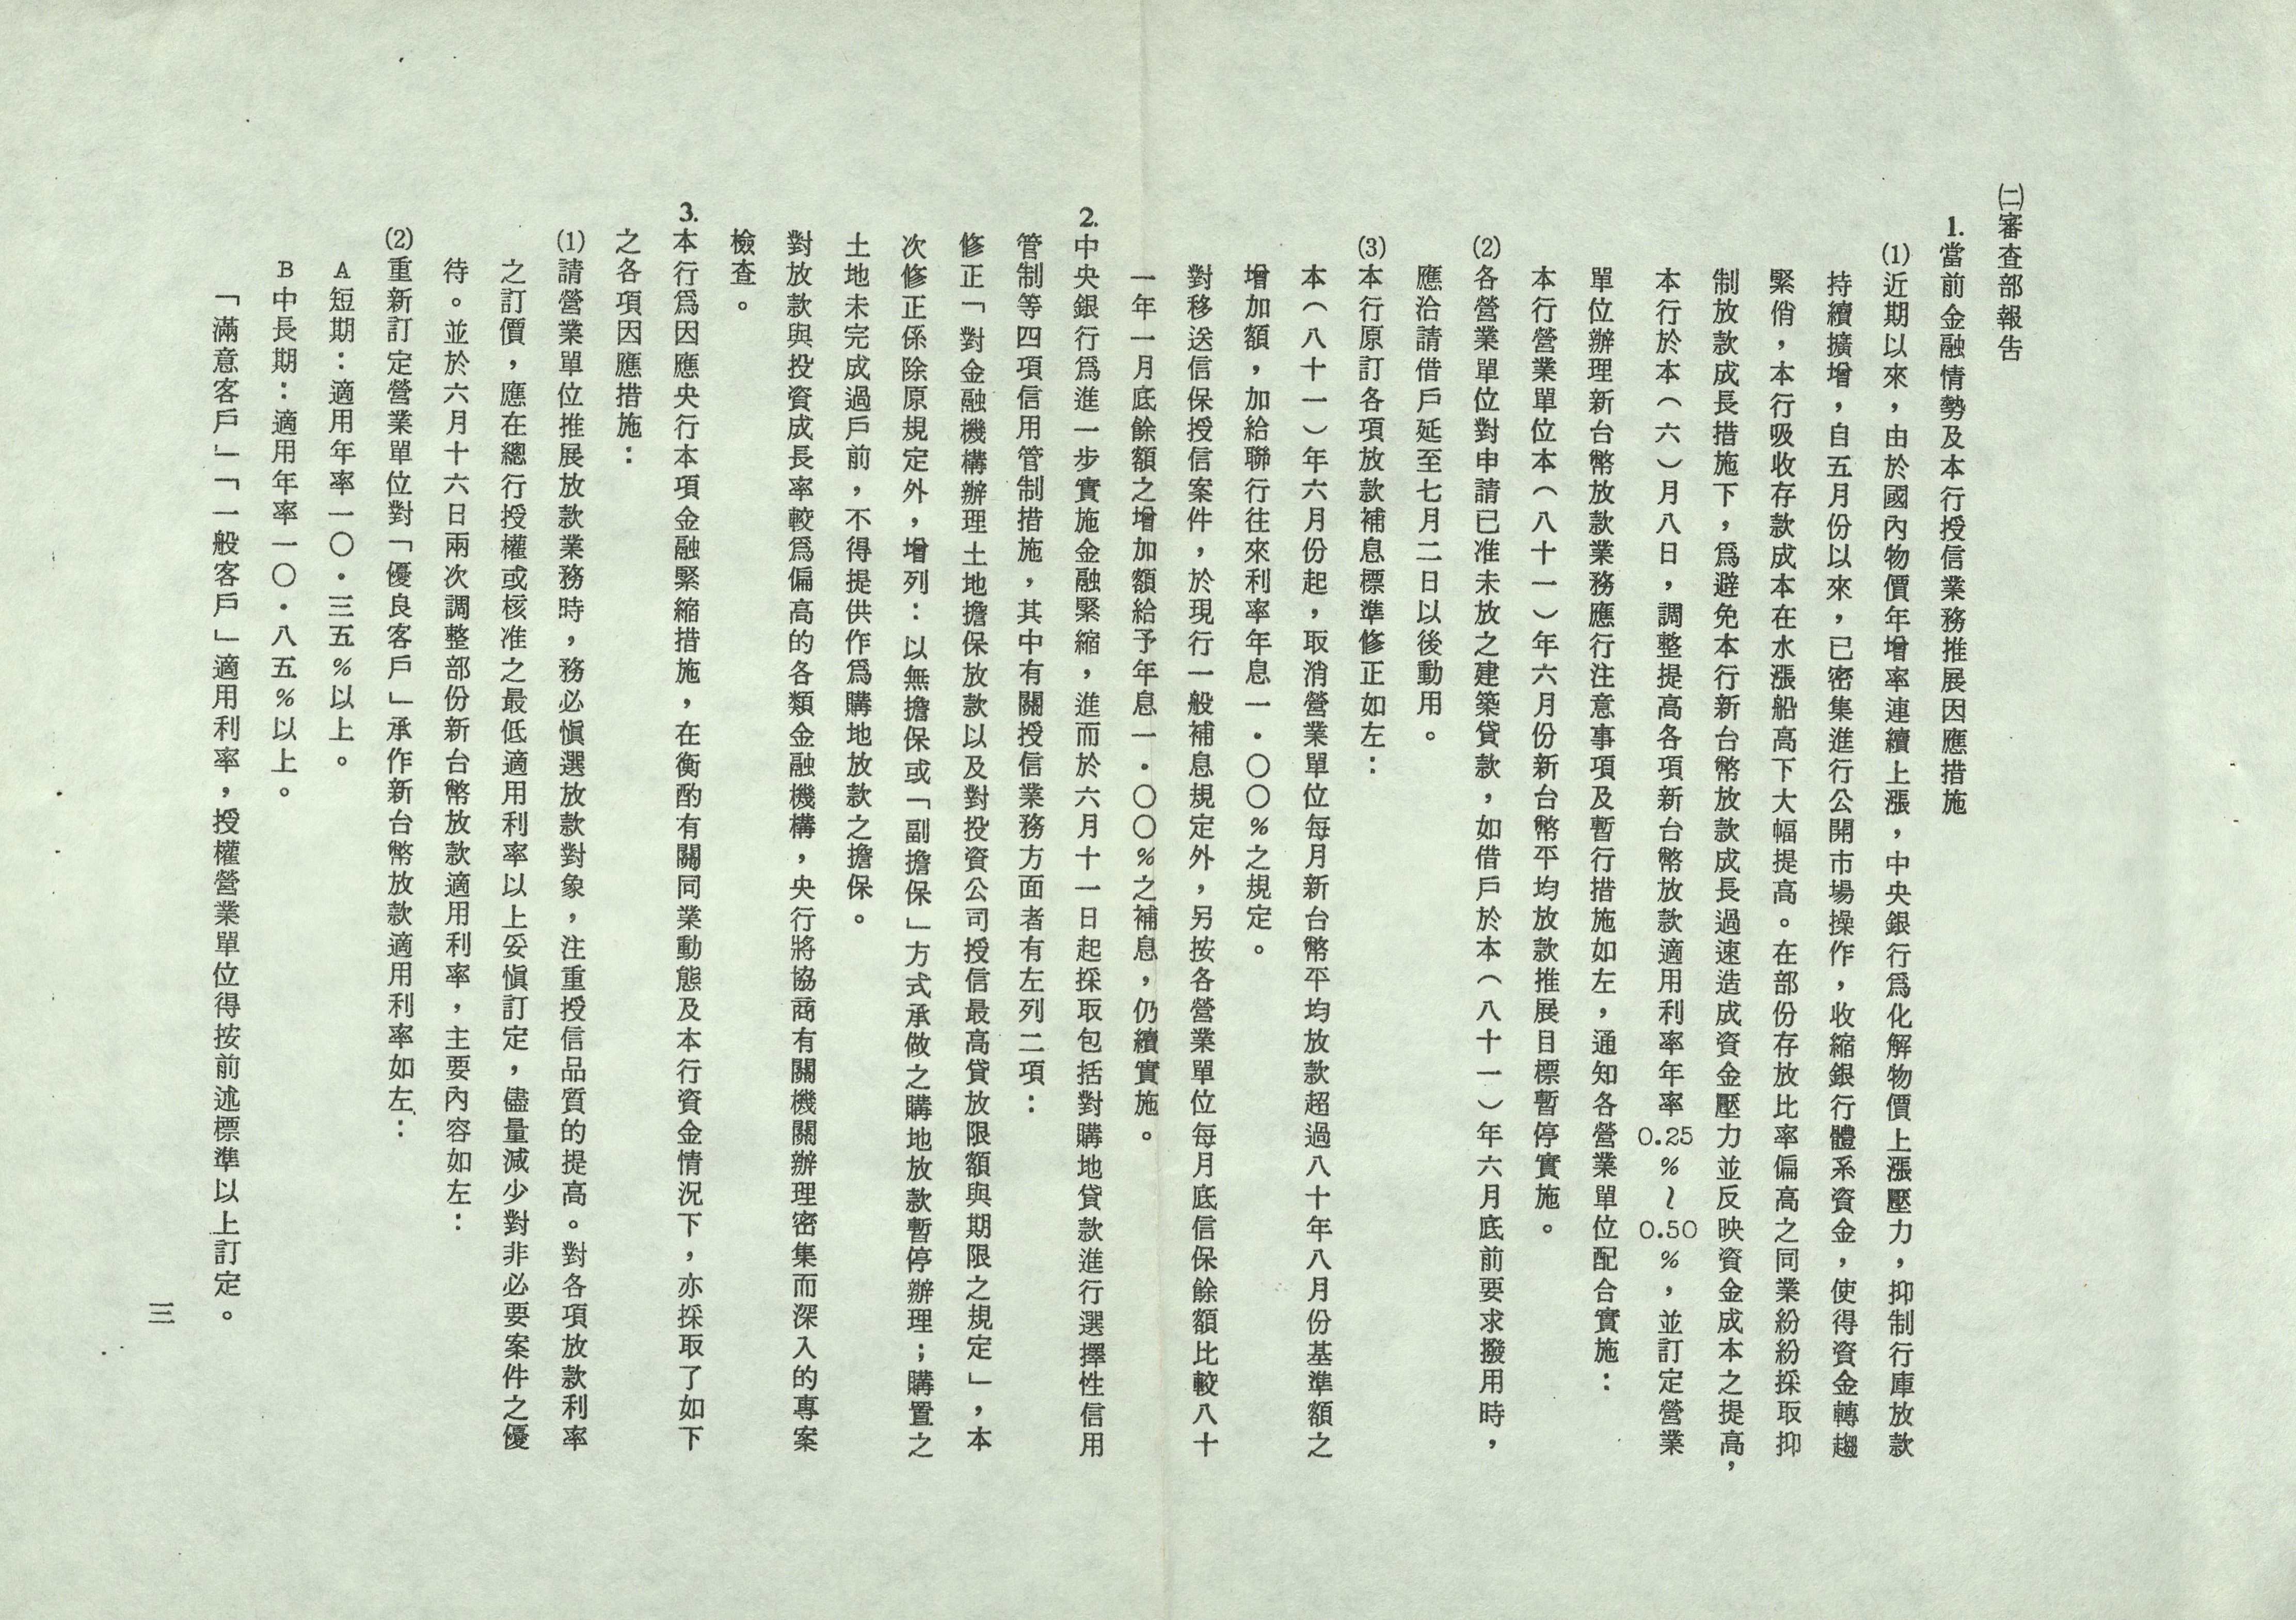 ㈡審查部報告
1.當前金融情勢及本行授信業務推展因應措施
⑴近期以來，由於國內物價年增率連續上漲，中央銀行爲化解物價上漲壓力，抑制行庫放款
持續擴增，自五月份以來，已密集進行公開市場操作，收縮銀行體系資金，使得資金轉趨
緊俏，本行吸收存款成本在水漲船高下大幅提高。在部份存放比率偏高之同業紛紛採取抑
制放款成長措施下，爲避免本行新台幣放款成長過速造成資金壓力並反映資金成本之提高，
本行於本（六）月八日，調整提高各項新台幣放款適用利率年率0.25％～0.50％，並訂定營業
單位辦理新台幣放款業務應行注意事項及暫行措施如左，通知各營業單位配合實施：
本行營業單位本（八十一）年六月份新台幣平均放款推展目標暫停實施。
⑵各營業單位對申請已准未放之建築貸款，如借戶於本（八十一）年六月底前要求撥用時，
應洽請借戶延至七月二日以後動用。
⑶本行原訂各項放款補息標準修正如左：
本（八十一）年六月份起，取消營業單位每月新台幣平均放款超過八十年八月份基準額之
增加額，加給聯行往來利率年息一．〇〇％之規定。
對移送信保授信案件，於現行一般補息規定外，另按各營業單位每月底信保餘額比較八十
一年一月底餘額之增加額給予年息一．〇〇％之補息，仍續實施。
2.中央銀行爲進一步實施金融緊縮，進而於六月十一日起採取包括對購地貸款進行選擇性信用
管制等四項信用管制措施，其中有關授信業務方面者有左列二項：
修正「對金融機構辦理土地擔保放款以及對投資公司授信最高貸放限額與期限之規定」，本
次修正係除原規定外，增列：以無擔保或「副擔保」方式承做之購地放款暫停辦理；購置之
土地未完成過戶前，不得提供作爲購地放款之擔保。
對放款與投資成長率較爲偏高的各類金融機構，央行將協商有關機關辦理密集而深入的專案
檢查。
3.本行爲因應央行本項金融緊縮措施，在衡酌有關同業動態及本行資金情況下，亦採取了如下
之各項因應措施：
⑴請營業單位推展放款業務時，務必慎選放款對象，注重授信品質的提高。對各項放款利率
之訂價，應在總行授權或核准之最低適用利率以上妥慎訂定，儘量減少對非必要案件之優
待。並於六月十六日兩次調整部份新台幣放款適用利率，主要內容如左：
⑵重新訂定營業單位對「優良客戶」承作新台幣放款適用利率如左：
A短期：適用年率一〇．三五％以上。
B中長期：適用年率一〇．八五％以上。
「滿意客戶」「一般客戶」適用利率，授權營業單位得按前述標準以上訂定。
三